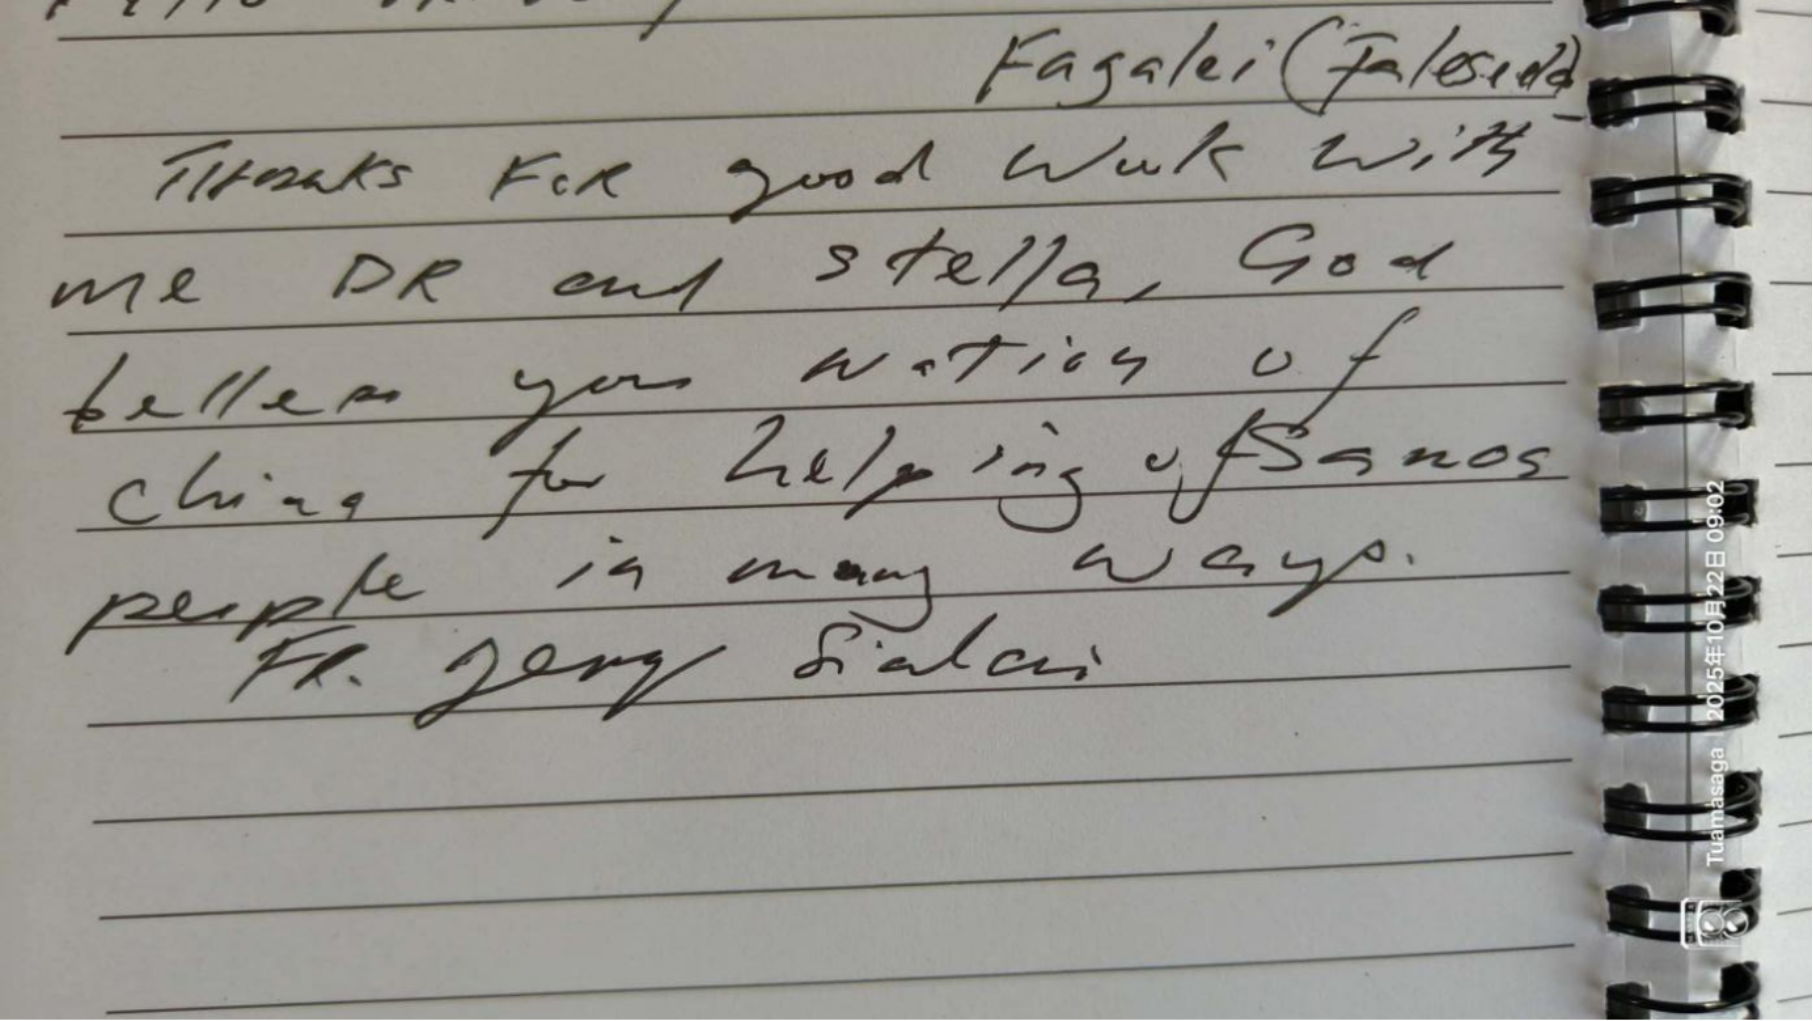 Fagalei (Faleseela)
Thanks FOR good Work with
me DR and stella, God
belless your nation of
china for helping of Samoa
people in many ways.
FR. Jerry Sialai
Tuamasaga | 2025年10月22日 09:02